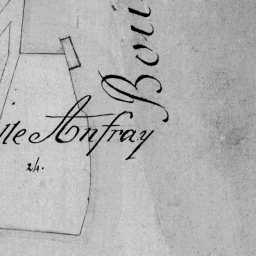 lle Anfray
24.
Boui